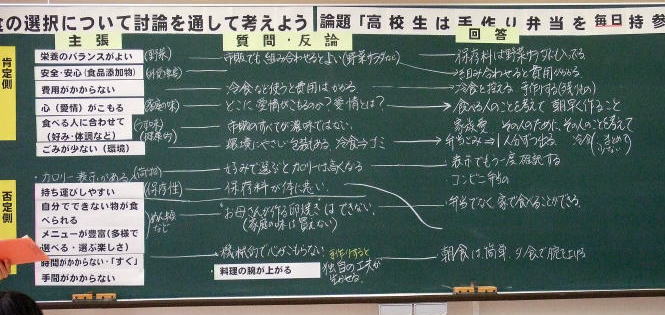 食の選択について討論を通して考えよう
論題「高校生は手作り弁当を毎日持参
主張
質問・反論
回答
肯定側
栄養のバランスがよい
(野菜)
市販でも組み合わせるとよい(野菜サラダなど)
保存料は野菜サラダも入ってる
安全・安心(食品添加物)
組み合わせると費用かかる
費用がかからない
冷食など使うと費用はかかる
冷食を控える 手作りする
心(愛情)がこもる
(家庭の味)
どこに愛情がこもるのか?愛情とは?
食べる人のことを考えて 朝早く作ること
食べる人に合わせて
(好み・体調など)
(健康的)
市販のすべてが濃味ではない。
家族愛 その人のために、その人のことを考えて
ごみが少ない(環境)
環境にやさしい包装もある、冷食→ゴミ
弁当ごみ⇒1人分ずつ出る。
・カロリー表示がある
好みで選ぶとカロリーは高くなる
表示でもう一度確認する
コンビニ弁当の
否定側
持ち運びしやすい
(保存性)
保存料が体に悪い
自分でできない物が食
べられる
"お母さんが作る卵焼き"はできない。
(家庭の味は買えない)
弁当でなく家で食べることができる。
メニューが豊富(多様で
選べる・選ぶ楽しさ)
機械的で心がこもらない
時間がかからない・「すぐ」
手間がかからない
料理の腕が上がる
手作りすると
独自の工夫が
生かせる。
朝食は簡単、夕食で腕を上げる